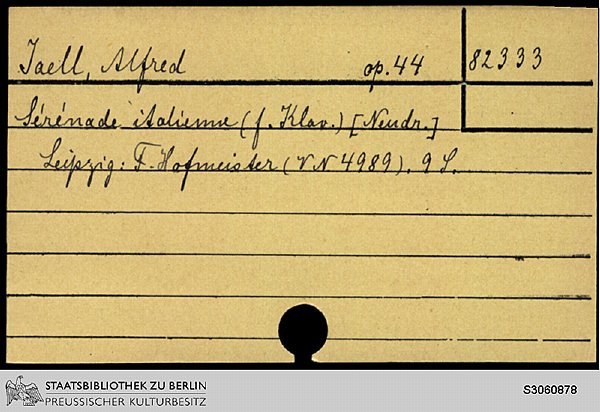 Jaell, Alfred op. 44 82333
Sérénade italienne (f. Klav.) [Neudr.]
Leipzig: F. Hofmeister (VN 4989). 9 S.
STAATSBIBLIOTHEK ZU BERLIN
PREUSSISCHER KULTURBESITZ
S3060878